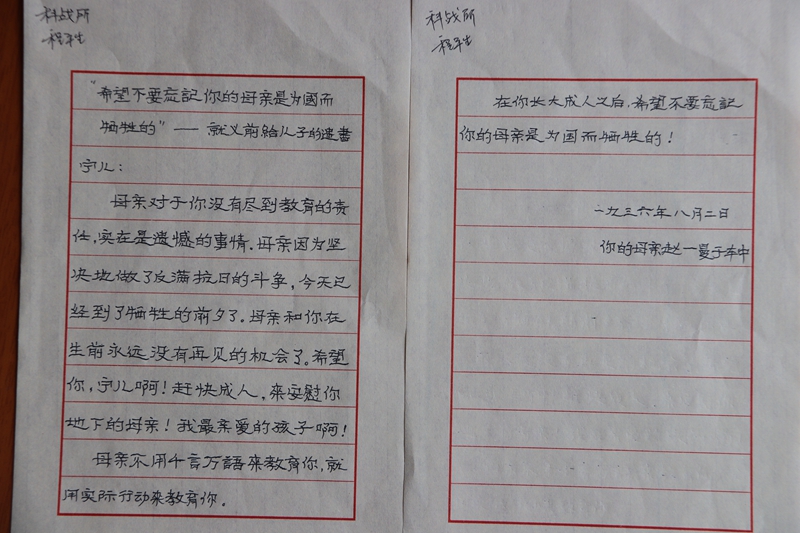 科战所
程平生
“希望不要忘記你的母亲是为國而
牺牲的”——就义前給儿子的遗書
宁儿:
母亲对于你没有尽到教育的责
任,实在是遗憾的事情。母亲因为坚
决地做了反满抗日的斗争,今天已
经到了牺牲的前夕了。母亲和你在
生前永远没有再见的机会了。希望
你,宁儿啊!赶快成人,来安慰你
地下的母亲!我最亲爱的孩子啊!
母亲不用千言万語来教育你,就
用实际行动来教育你。
科战所
程平生
在你长大成人之后,希望不要忘記
你的母亲是为国而牺牲的!
一九三六年八月二日
你的母亲赵一曼于车中